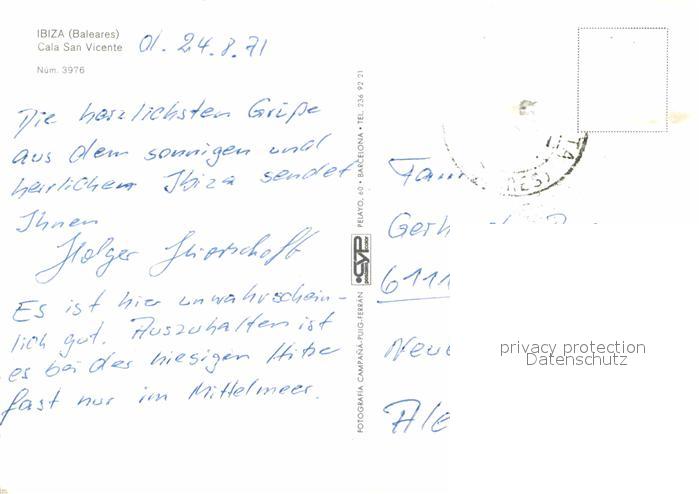 IBIZA (Baleares)
Cala San Vicente
Núm. 3976
d. 24.8.71
Die herzlichsten Grüße
aus dem sonnigen und
herrlichen Ibiza sendet
Ihnen
Holger
Es ist hier unwahrschein-
lich gut. Auszuhalten ist
es bei der hiesigen Hitze
fast nur im Mittelmeer.
FOTOGRAFÍA CAMPAÑÁ-PUIG-FERRÁN
CYP
PELAYO, 60 • BARCELONA • TEL. 236 92 21
Fam
Gerh
6111
Neu
Ale
privacy protection
Datenschutz